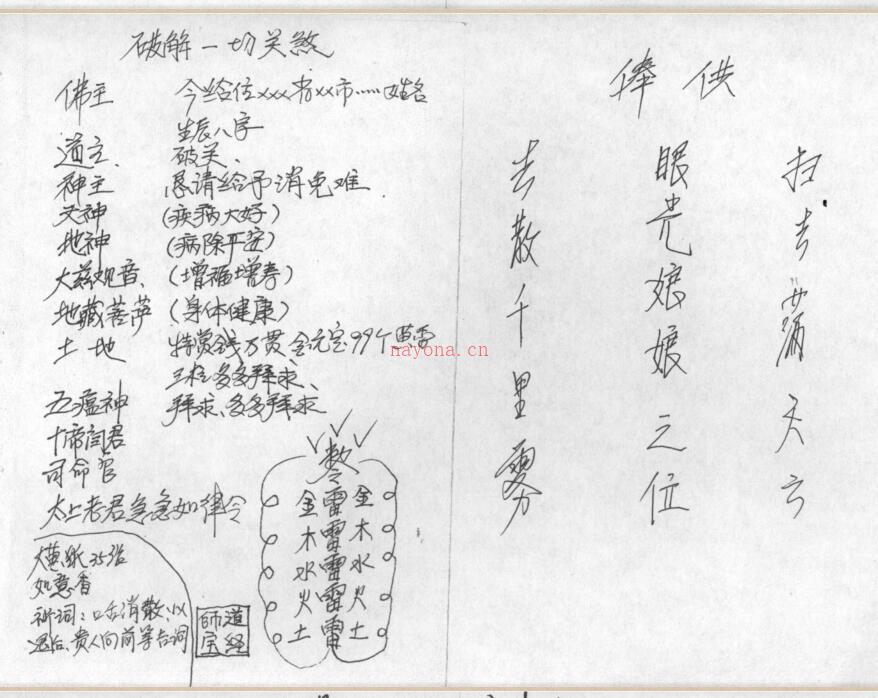 破解一切关煞
佛主 今给位xxx省xx市……姓名
生辰八字
道主、 破关、
神主 恳请给予消免难
天神 (疾病大好)
地神 (病除平安)
大慈观音、 (增福增寿)
地藏菩萨 (身体健康)
土地 特赏钱万贯 金元宝99个
多多拜求、
五瘟神 拜求、多多拜求
十帝阎君
司命官
太上老君急急如律令
金雷金
木雷木
水雷水
火雷火
土雷土
大黄纸35张
如意香
祈词：口舌消散、小人
退后、贵人向前等台词
道经師宝
nayona.cn
俸供
扫去满天云
眼光娘娘之位
去散千里雾